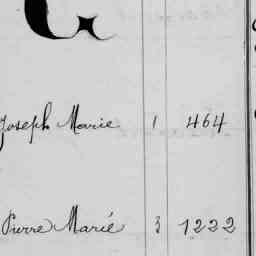 Joseph Marie 1 464
Pierre Marié 3 1222